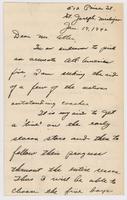 512 Price St.
St. Joseph, Michigan
Jan. 19, 1940
Dear Mr.
In an endeavor to pick
an accurate All American
five I am seeking the aid
of a few of the nations
outstanding coaches.
It is my aim to get
a line on the early
season stars and then to
follow their progress
throughout the entire season.
Thus I will be able to
choose the five boys